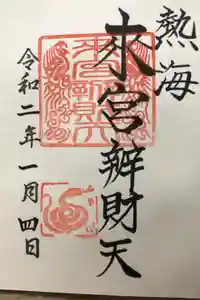 熱海
來宮辨財天
令和二年一月四日